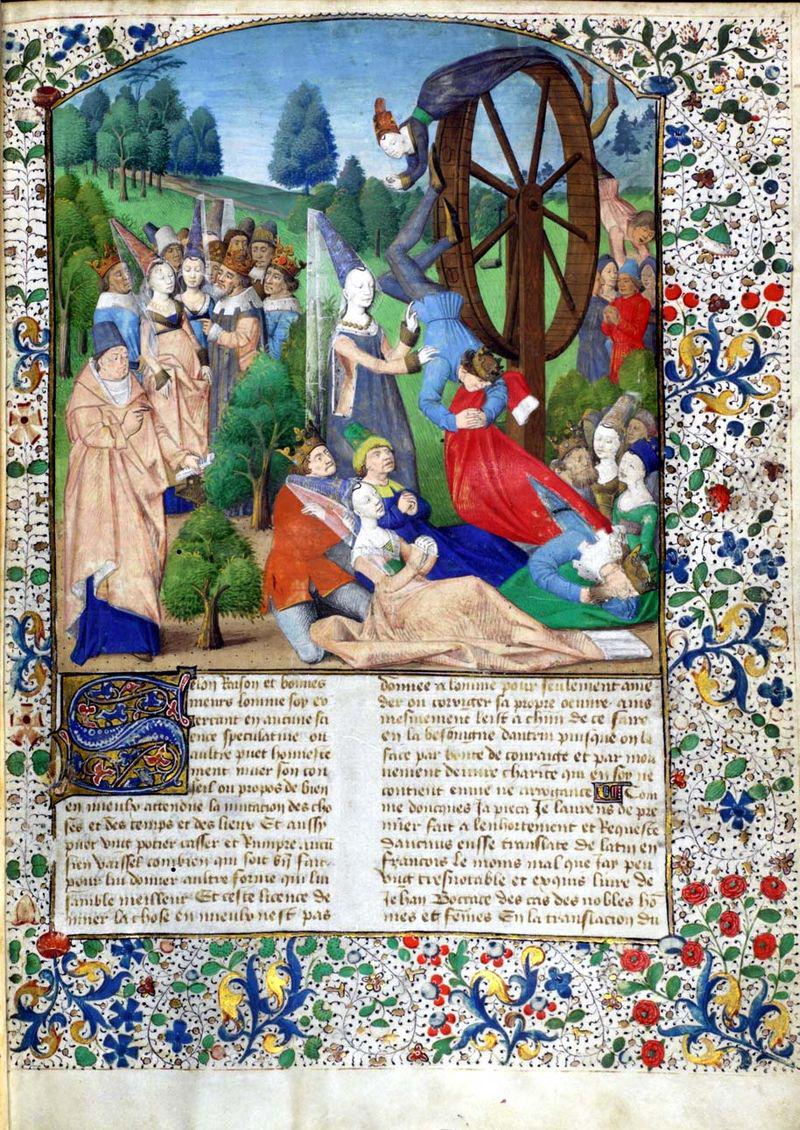 Selon Raison et bonnes
meurs lomme soy ex
ercant en aucune sci
ence speculative ou
aultre puet honneste
ment muer son con
seil ou propos de bien
en mieulx attendue la mutation des cho
ses et des temps et des lieux Et aussy
puet ung potier casser et Rompre aucu
sien vaissel combien qui soit bn̄ fait
pour lui donner aultre forme qui lui
samble meilleur Et ceste licence de
muer la chose en mieulx nest pas
donnee a lomme pour seulement ame
der ou corriger sa propre oeuvre ains
mesmement leist a chun de ce faire
en la besoingne dautrui puisque on la
face par bonte de couraige et par mou
vement de vraye charite qui en soy ne
contient envie ne arrogance Com
me doncques Ja pieca Je laurens de pre
mier fait a lenhortement et Requeste
daucuns eusse translate de latin en
francois le moins mal que Jay peu
ung tresnotable et exquis livre de
Jehan Boccace des cas des nobles hō
mes et femes En la translacion du